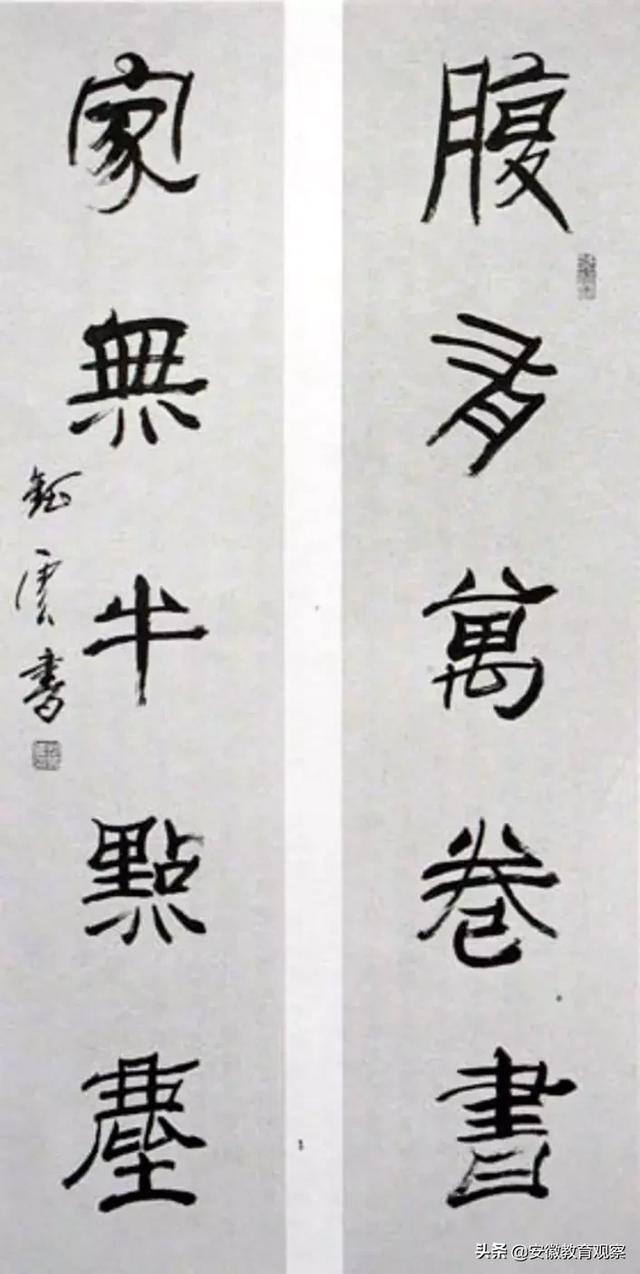 腹有萬卷書
家無半點塵
書
头条 @安徽教育观察